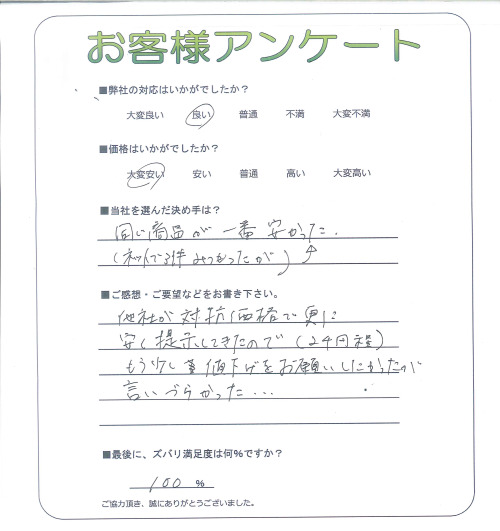 お客様アンケート
■弊社の対応はいかがでしたか？
大変良い 良い 普通 不満 大変不満
■価格はいかがでしたか？
大変安い 安い 普通 高い 大変高い
■当社を選んだ決め手は？
同じ商品が一番安かった.
(ネットで3件みつかったが)↑
■ご感想・ご要望などをお書き下さい。
他社が対抗価格で更に
安く提示してきたので(24円程)
もう少し値下げをお願いしたかったが
言いづらかった...
■最後に、ズバリ満足度は何％ですか？
100 %
ご協力頂き、誠にありがとうございました。